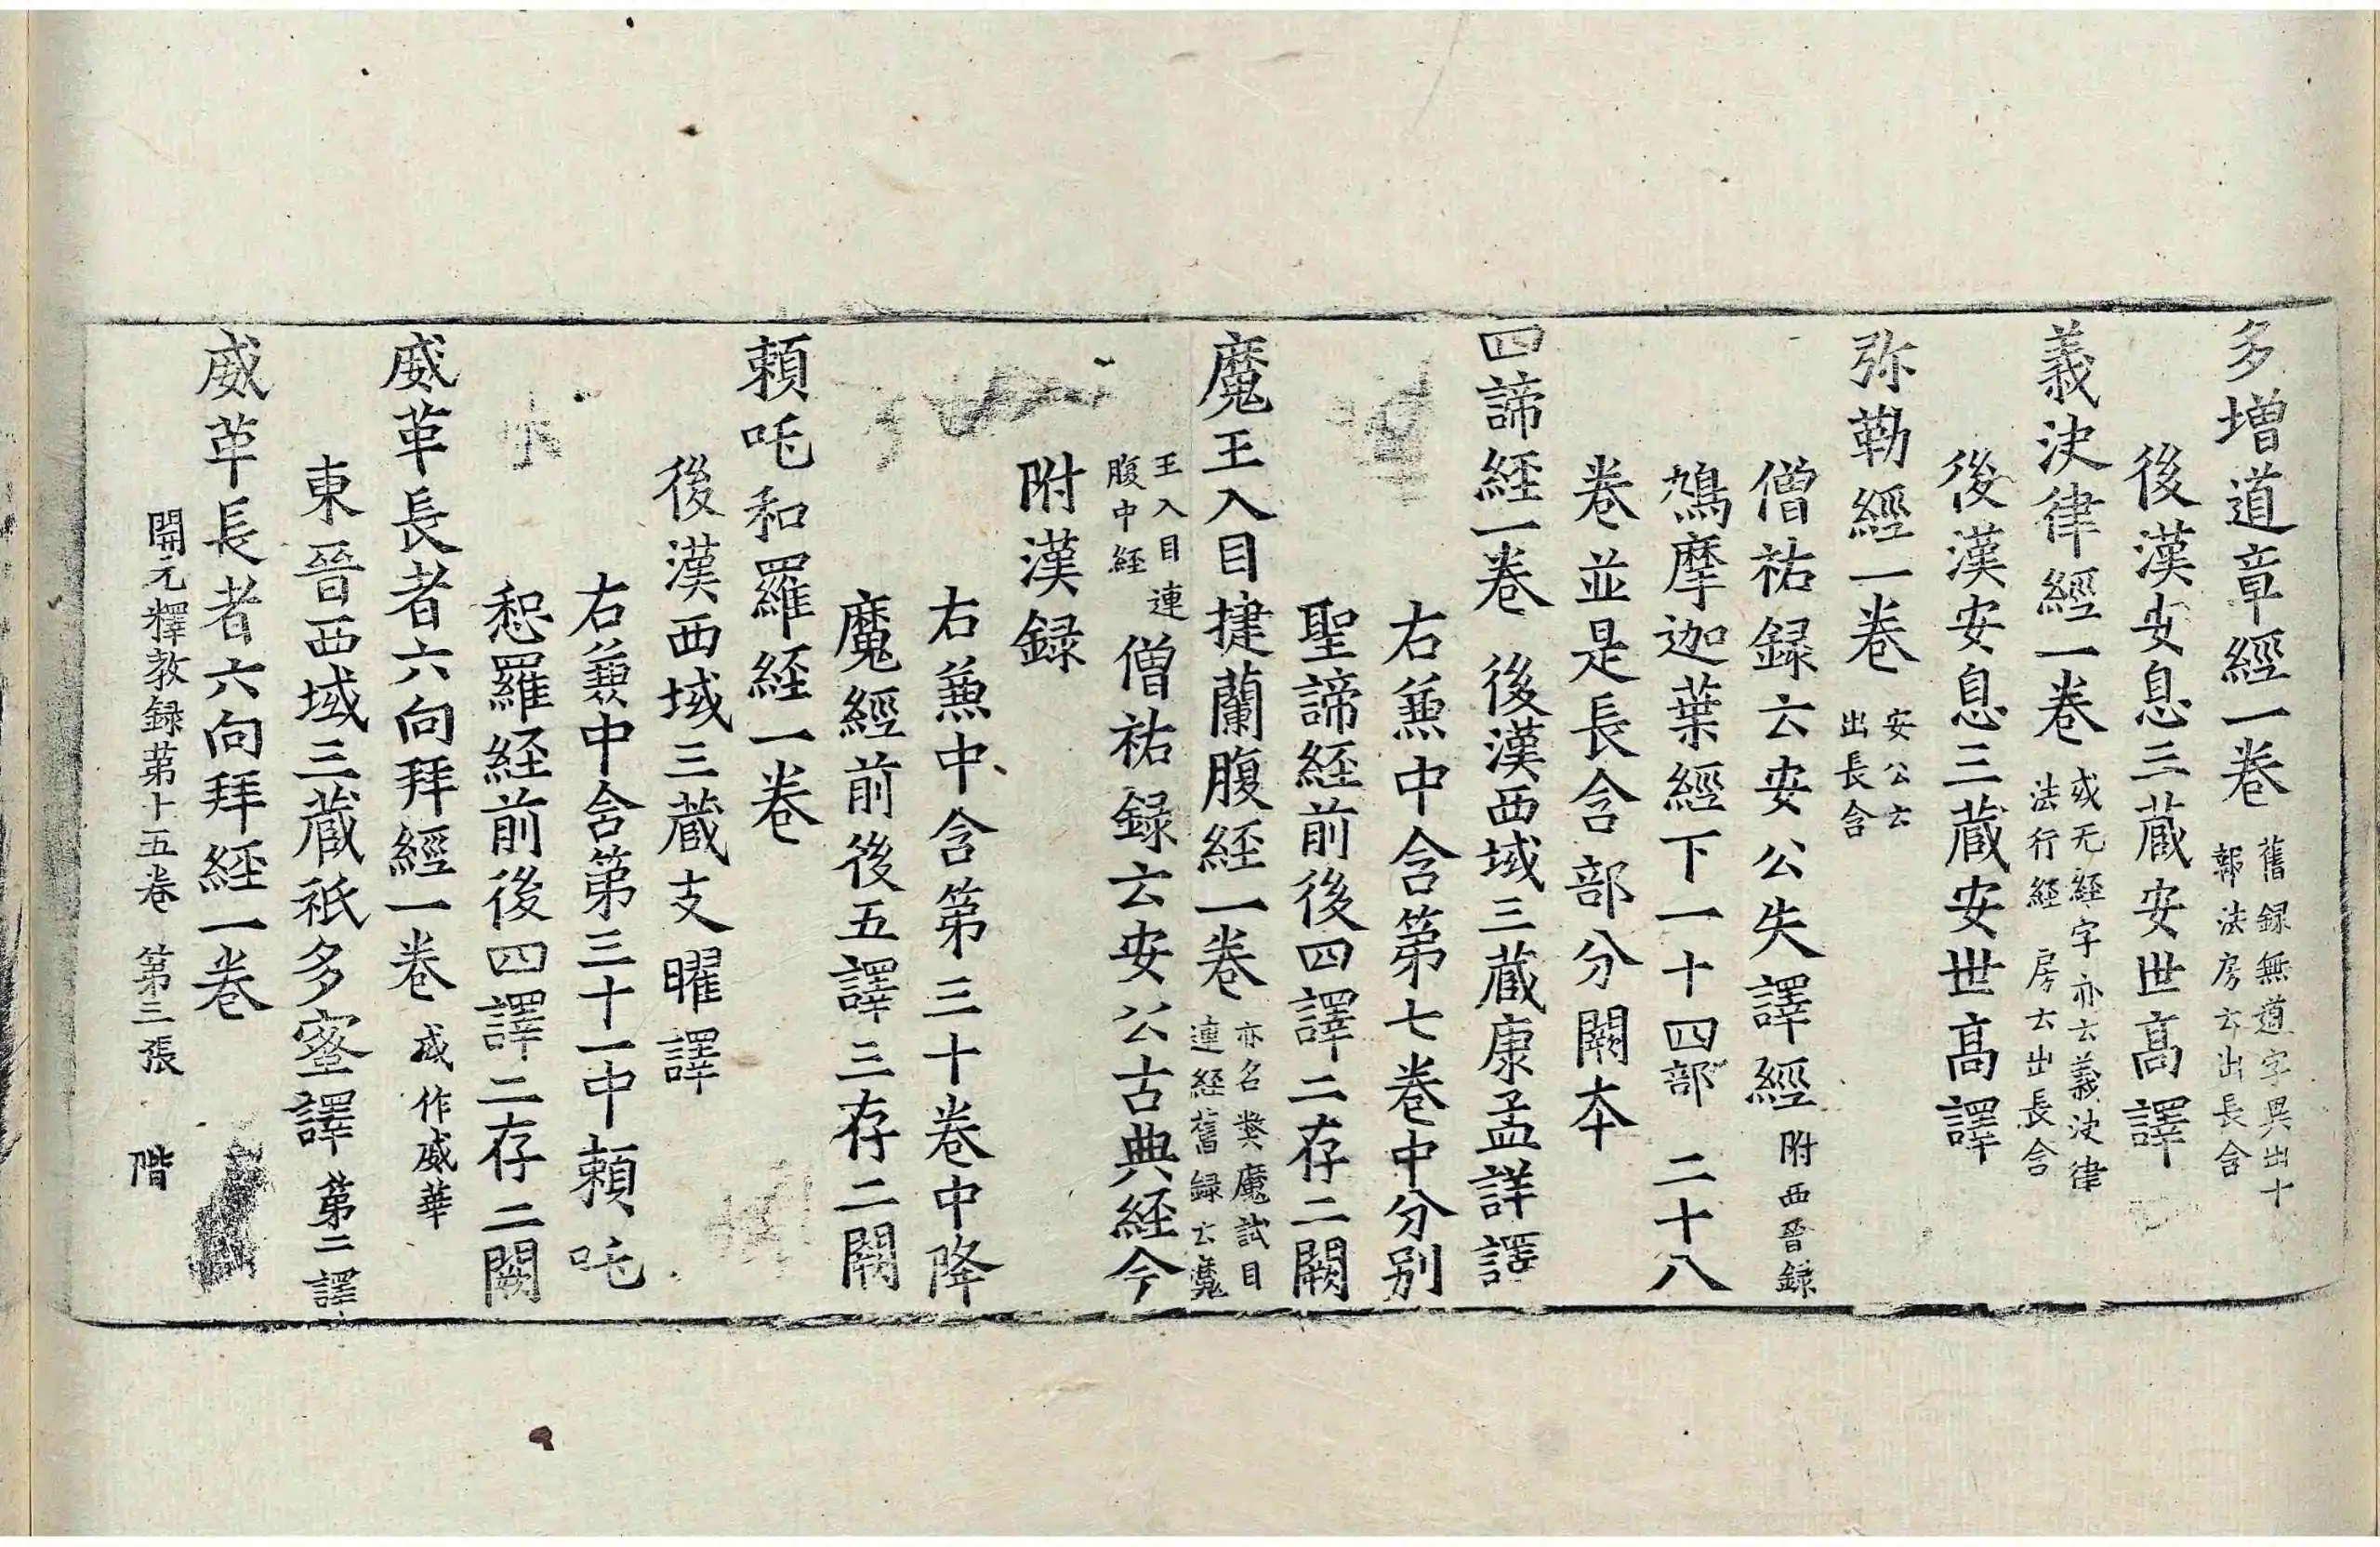 多增道章經一卷 舊録無道字異出十報法房云出長含
後漢安息三蔵安世髙譯
義决律經一卷 或无経字亦云義决律法行経 房云出長含
後漢安息三蔵安世髙譯
弥勒經一卷 安公云出長含
僧祐録云安公失譯經 附西晉録
鴆摩迦葉經下一十四部 二十八
卷並是長含部分闕本
四諦経一卷 後漢西域三蔵康孟詳譯
右𠔥中含第七卷中分别
聖諦経前後四譯二存二闕
魔王入目揵蘭腹経一卷 亦名弊魔試目連経舊録云魔
王入目連腹中経 僧祐録云安公古典経今
附漢録
右𠔥中含第三十卷中降
魔經前後五譯三存二闕
頼吒和羅経一卷
後漢西域三蔵支曜譯
右𠔥中含第三十一中頼吒
惒羅経前後四譯二存二闕
威革長者六向拜經一卷 或作威華
東晉西域三蔵祇多蜜譯 第二譯
威革長者六向拜経一卷
開元釋教録第十五卷 第三張 階